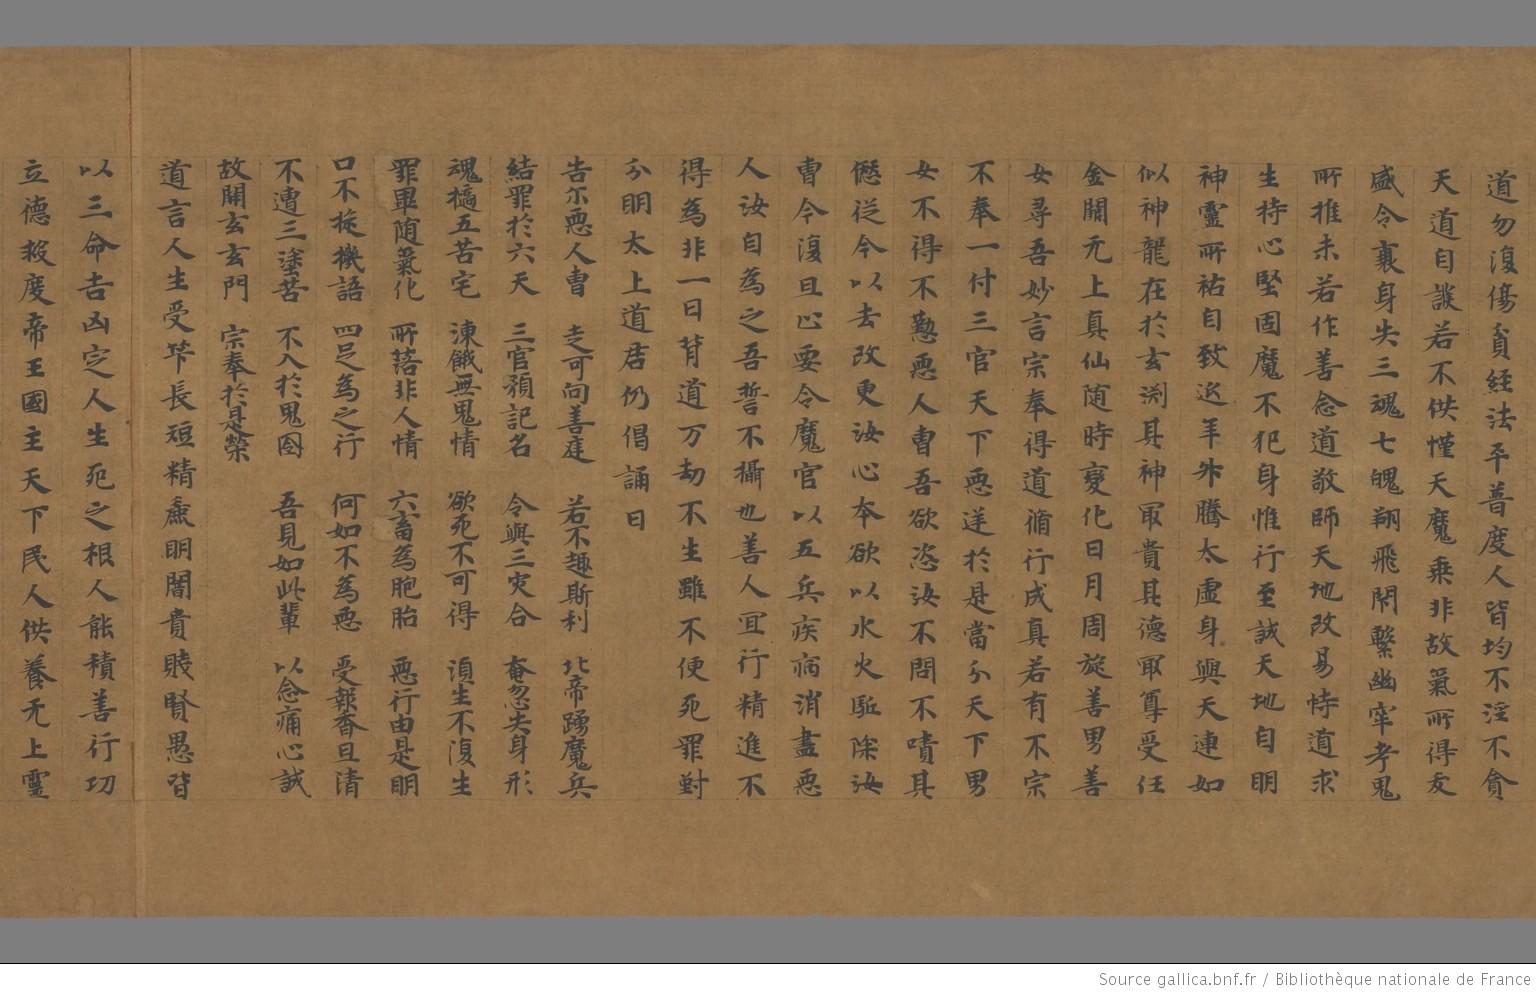 道勿復傷貪經法平普度人皆均不淫不貪
天道自諼若不供慢天魔乘非故氣所得友
盛令襄身失三魂七魄翔飛閇繫幽牢考鬼
所推未若作善念道敬師天地改易恃道求
生持心堅固魔不犯身惟行至誠天地自明
神靈所祐自致返年升騰太虛身與天連如
似神龍在於玄渕其神冣貴其德冣尊受任
金闕无上真仙随時變化日月周旋善男善
女尋吾妙言宗奉得道脩行成真若有不宗
不奉一付三官天下惡送於是當分天下男
女不得不懃惡人曹吾欲恣汝不問不嘖其
僽從今以去改更汝心本欲以水火駈除汝
曹今復且心要令魔官以五兵疾病消盡惡
人汝自為之吾誓不攝也善人宜行精進不
得為非一日背道万劫不生雖不便死罪對
分明太上道君仍倡誦曰
告尓惡人曹 走可向善庭 若不趣斯利 北帝踴魔兵
結罪於六天 三官預記名 令與三灾合 奄忽失身形
魂撟五苦宅 凍餓無鬼情 欲死不可得 湏生不復生
罪畢随氣化 所落非人情 六畜為胞胎 惡行由是明
口不旋機語 四足為之行 何如不為惡 受報香且清
不遭三塗苦 不入於鬼囹 吾見如此輩 以念痛心誠
故開玄玄門 宗奉於是榮
道言人生受竿長短精麁明闇貴賤賢愚皆
以三命吉凶定人生死之根人能積善行功
立德救度帝王國主天下民人供養无上靈
Source gallica.bnf.fr / Bibliothèque nationale de France